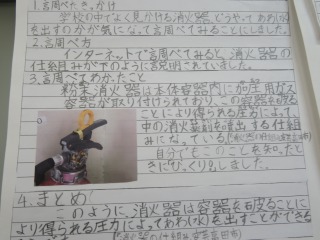 1.調べたきっかけ
学校の中でよく見かける消火器、どうやってあわ(水)
を出すのかが気になって調べてみることにしました。
2.調べ方
インターネットで調べてみると、消火器の
仕組みが下のように説明されていました。
3.調べてわかったこと
粉末消火器は本体容器内に加圧用ガス
容器が取り付けられており、この容器を破る
ことにより得られる圧力によって、
中の消火薬剤を放出する仕組
みになっている
自分でもこのことを知ったと
きにびっくりしました。
4.まとめ
このように、消火器は容器を破ることに
より得られる圧力によってあわ(水)を出すことができる